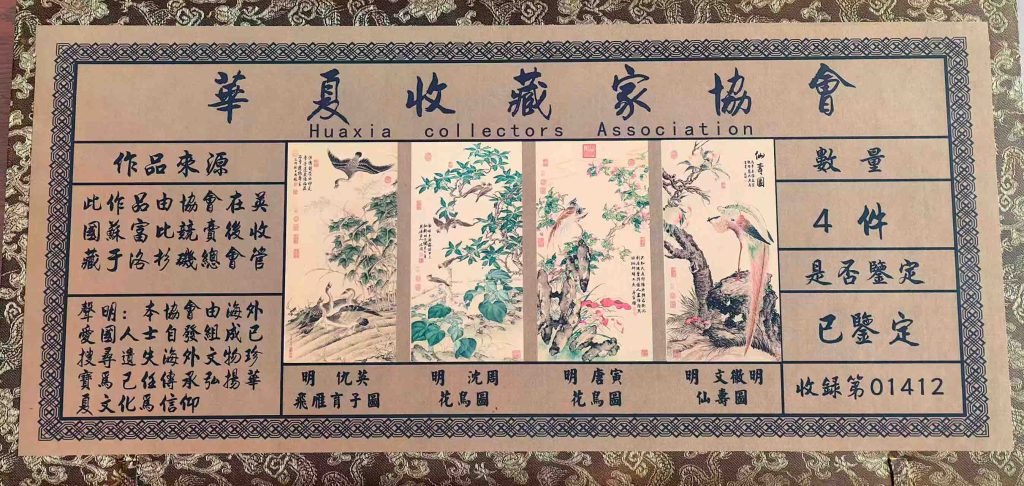 華夏收藏家協會
Huaxia collectors Association
作品來源
此作品由協會在英
國蘇富比競賣後收
藏于洛杉磯總會管
聲明：本協會由海外
愛國人士自發組成已
搜尋遺失海外文物珍
寶爲己任傳承弘揚華
夏文化爲信仰
仙壽圖
明 仇英
飛雁育子圖
明 沈周
花鳥圖
明 唐寅
花鳥圖
明 文徵明
仙壽圖
數量
4 件
是否鑒定
已鑒定
收録第01412